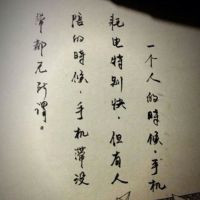 一个人的時候，手机
耗电特别快，但有人
陪的時候，手机带没
带都无所谓。